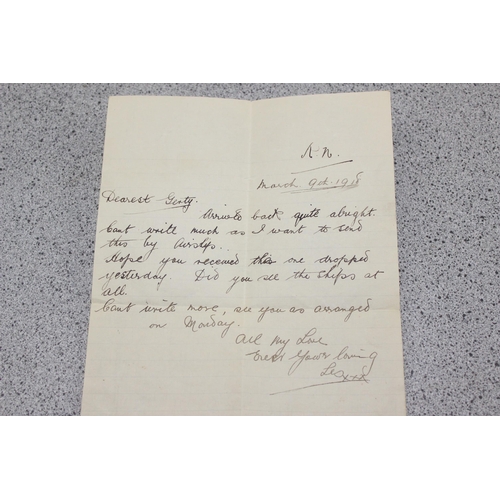 March 9th 1918
Dearest Gerty.
Arrived back quite alright.
Cant write much as I want to send
this by Airship..
Hope you received this one dropped
yesterday. Did you see the ships at
all.
Cant write more, see you as arranged
on Monday.
All My Love
Ever Yours loving